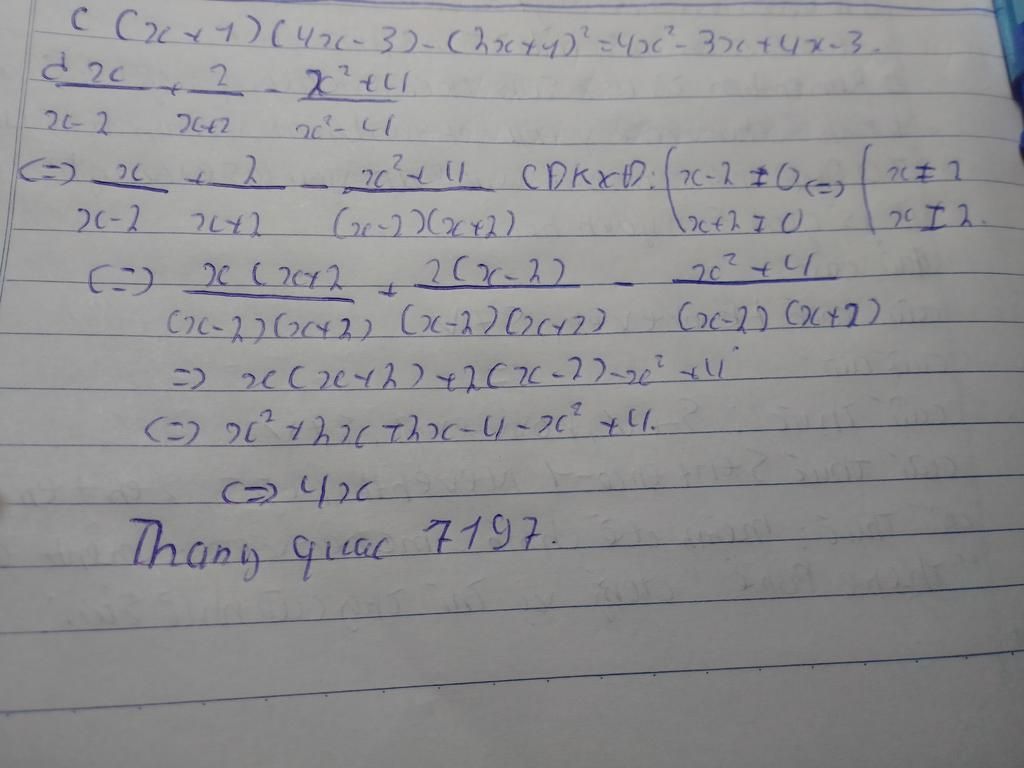 c (x+1)(4x-3)-(2x+1)²=4x²-3x+4x-3.
d x/x-2 + 2/x+2 - x²+4/x²-4
<=> x/x-2 + 2/x+2 - x²+4/(x-2)(x+2) (ĐKXĐ: { x-2≠0 x+2≠0 <=> { x≠2 x≠2.
<=> x(x+2/(x-2)(x+2) + 2(x-2)/(x-2)(x+2) - x²+4/(x-2)(x+2)
=> x(x+2)+2(x-2)-x²+4
<=> x²+2x+2x-4-x²+4.
<=> 4x
Thang quac 7197.